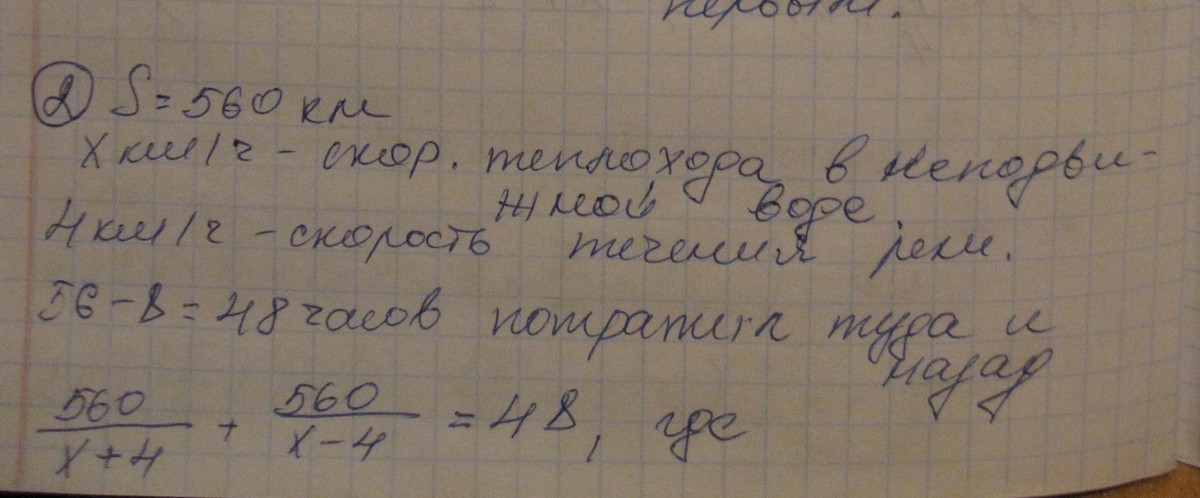 первый.
② S = 560 км
x км/ч - скор. теплохода в неподви-
жной воде.
4 км/ч - скорость течения реки.
56 - 8 = 48 часов потратил туда и
назад
560/(x+4) + 560/(x-4) = 48, где